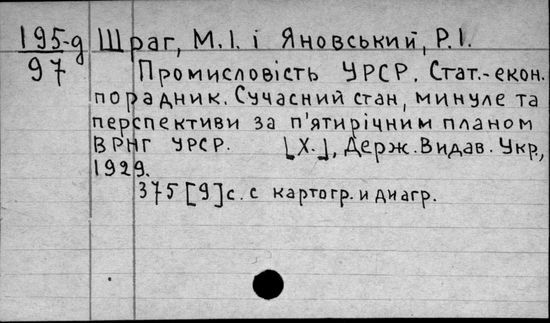 195-д Шраг, М.І. і Яновський, Р.І.
97
Промисловість УРСР. Стат.-екон.
порадник. Сучасний стан, минуле та
перспективи за п'ятирічним планом
ВРНГ УРСР. [Х.], Держ. Видав. Укр,
1929.
375 [9] с. с картогр. и диагр.